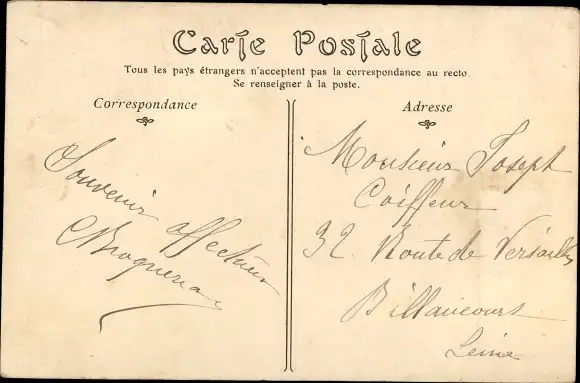 Carte Postale
Tous les pays étrangers n'acceptent pas la correspondance au recto.
Se renseigner à la poste.
Correspondance
Souvenir affectueux
Adresse
Monsieur Joseph
Coiffeur
32 Route de Versailles
Billancourt
Seine